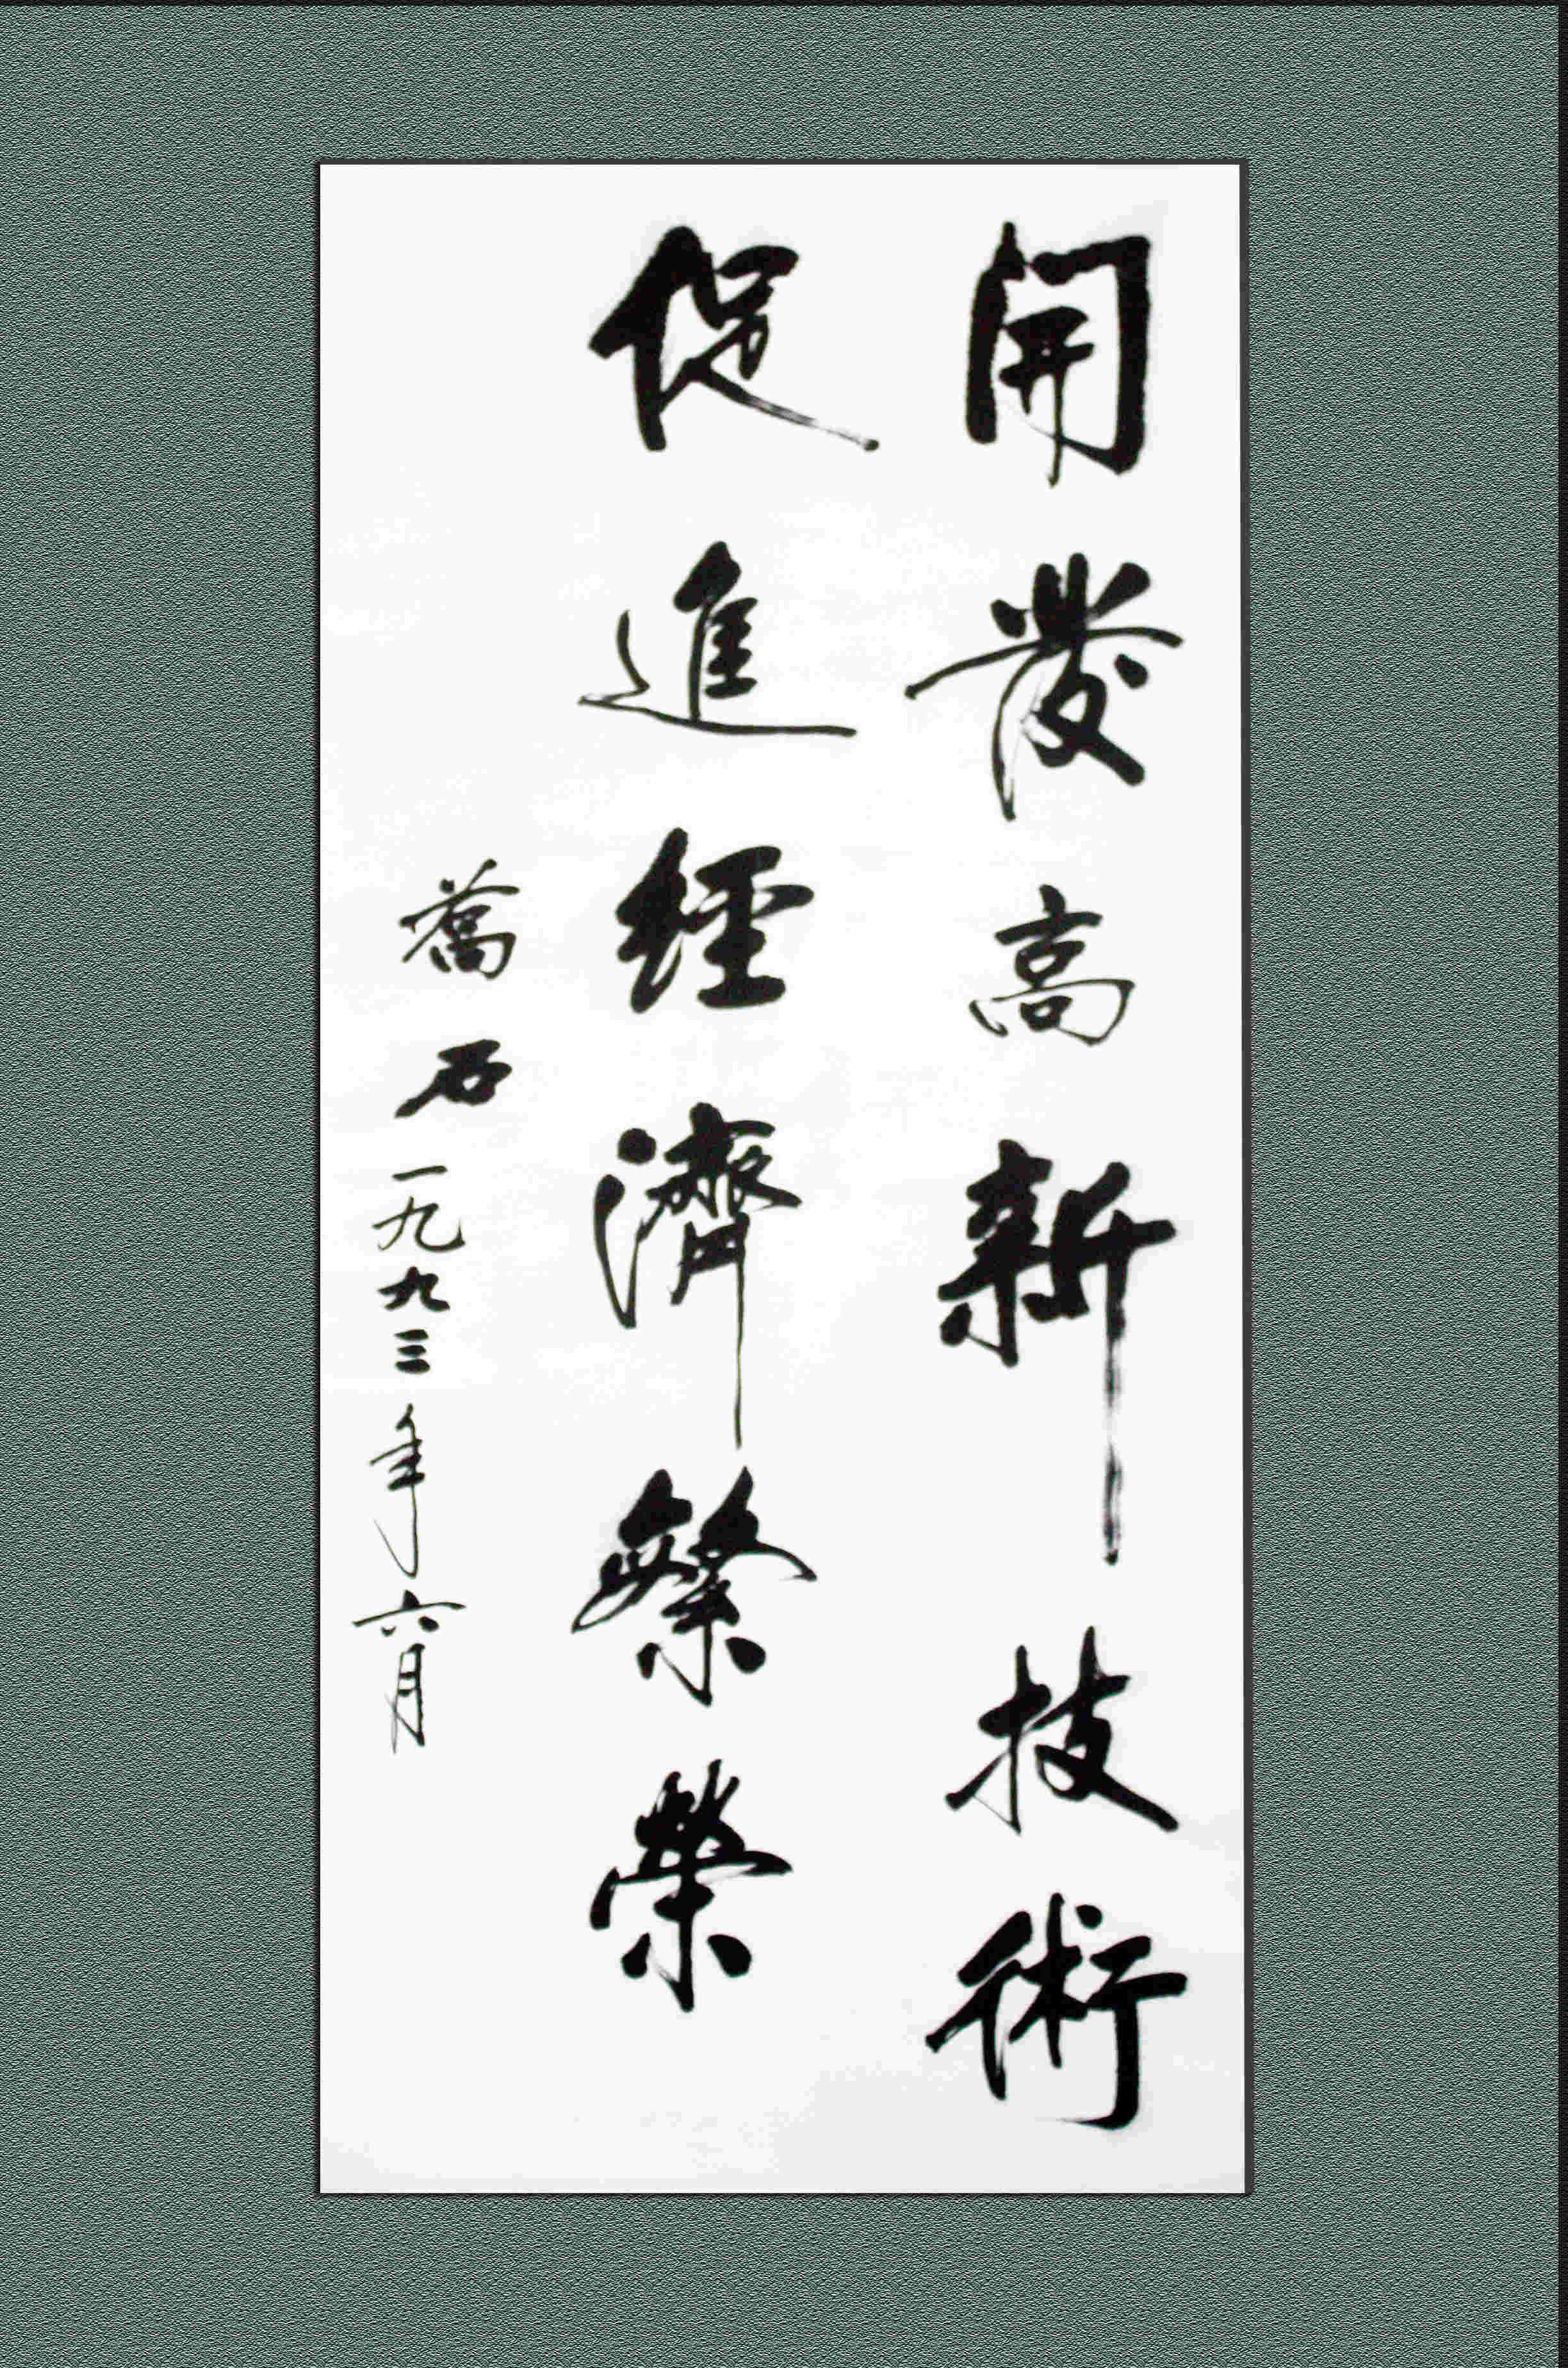 開發高新技術
促進經濟繁榮
喬石一九九三年六月